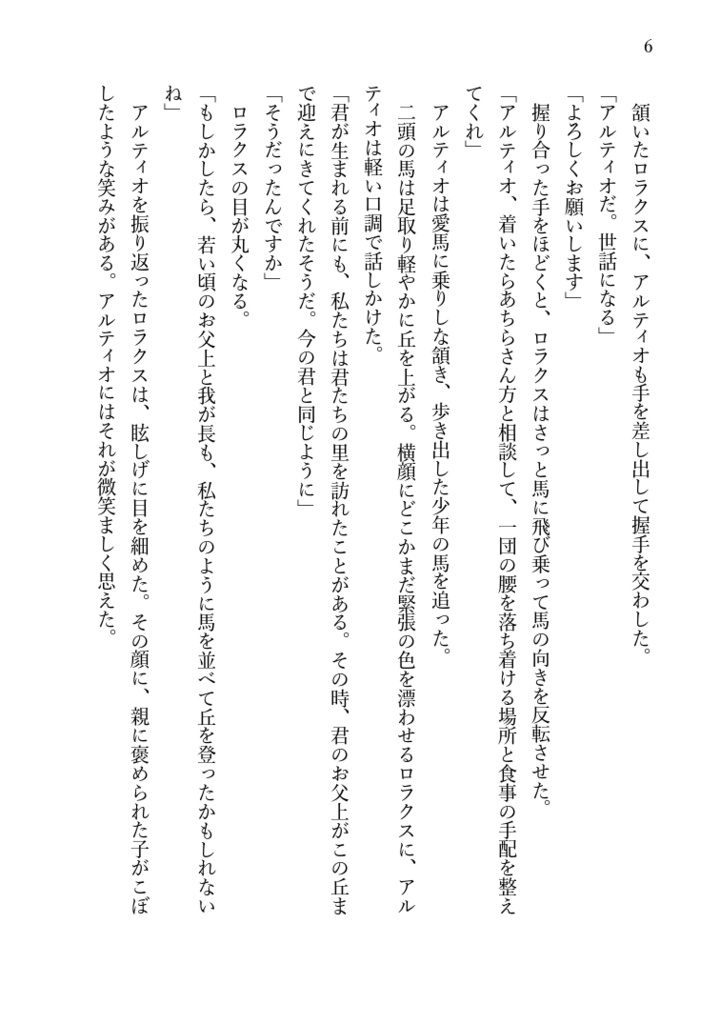 6
頷いたロラクスに、アルティオも手を差し出して握手を交わした。
「アルティオだ。世話になる」
「よろしくお願いします」
握り合った手をほどくと、ロラクスはさっと馬に飛び乗って馬の向きを反転させた。
「アルティオ、着いたらあちらさん方と相談して、一団の腰を落ち着ける場所と食事の手配を整え
てくれ」
アルティオは愛馬に乗りしな頷き、歩き出した少年の馬を追った。
二頭の馬は足取り軽やかに丘を上がる。横顔にどこかまだ緊張の色を漂わせるロラクスに、アル
ティオは軽い口調で話しかけた。
「君が生まれる前にも、私たちは君たちの里を訪れたことがある。その時、君のお父上がこの丘ま
で迎えにきてくれたそうだ。今の君と同じように」
「そうだったんですか」
ロラクスの目が丸くなる。
「もしかしたら、若い頃のお父上と我が長も、私たちのように馬を並べて丘を登ったかもしれない
ね」
アルティオを振り返ったロラクスは、眩しげに目を細めた。その顔に、親に褒められた子がこぼ
したような笑みがある。アルティオにはそれが微笑ましく思えた。